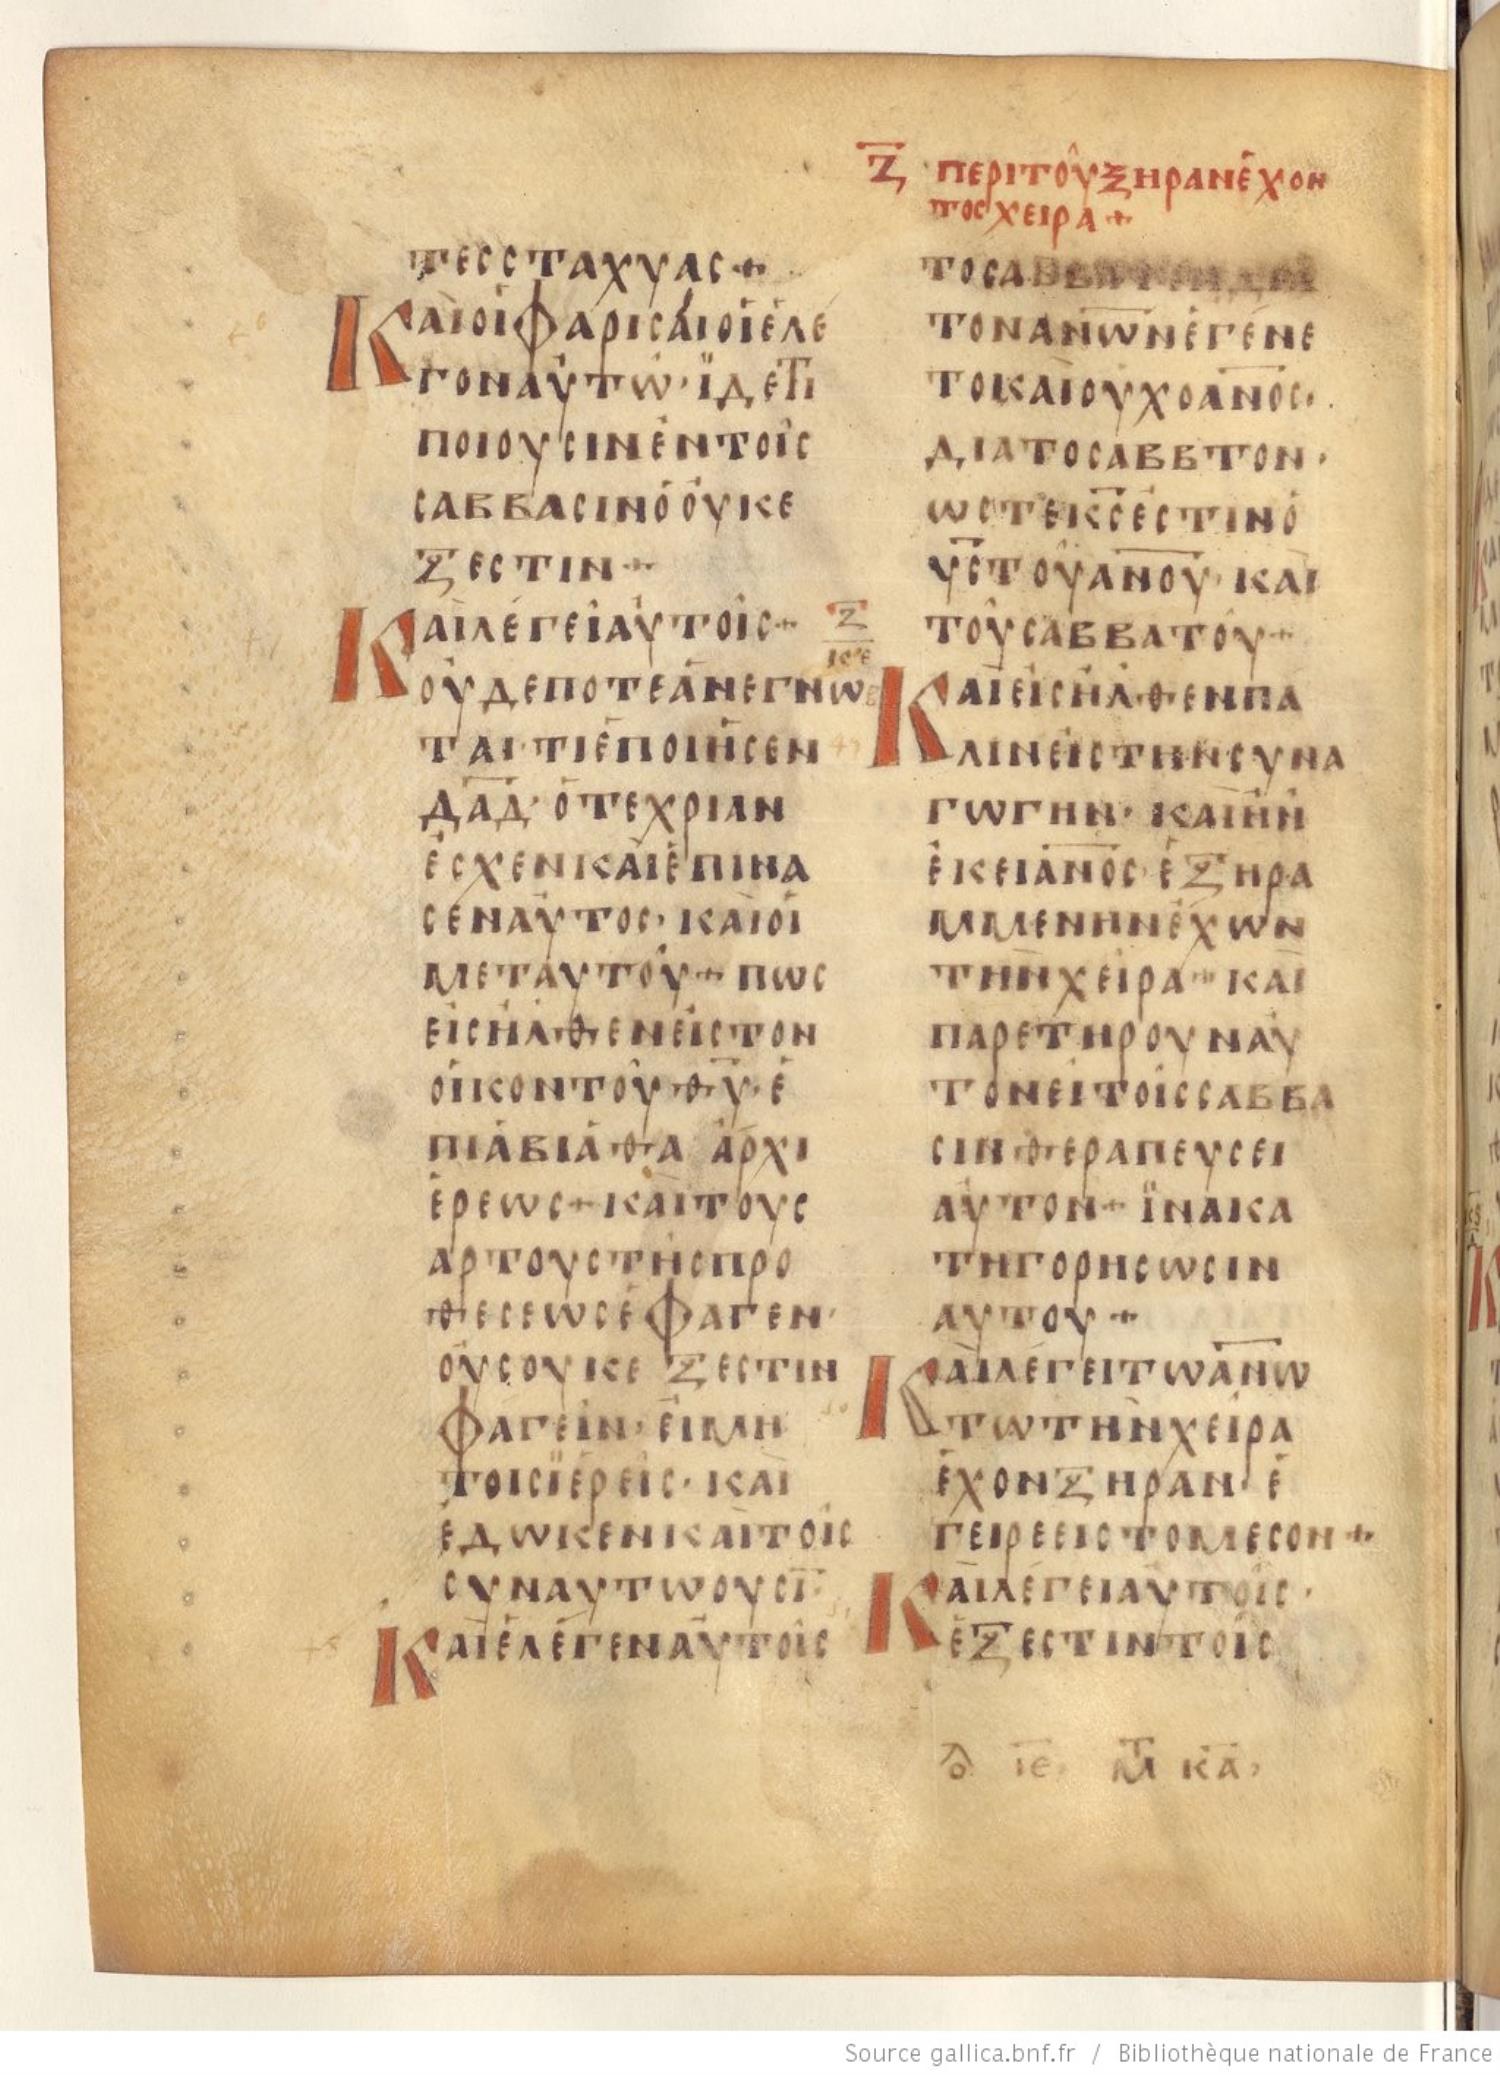 Ζ ΠΕΡΙΤΟΥΞΗΡΑΝΕΧΟΝ
ΤΟΣΧΕΙΡΑ+
ΤΕΣΣΤΑΧΥΑΣ+
ΚΑΙΟΙΦΑΡΙΣΑΙΟΙΕΛΕ
ΓΟΝΑΥΤΩ·ΪΔΕΤΙ
ΠΟΙΟΥΣΙΝΕΝΤΟΙΣ
ΣΑΒΒΑΣΙΝΟΟΥΚΕ
ΞΕΣΤΙΝ+
ΚΑΙΛΕΓΕΙΑΥΤΟΙΣ+
ΟΥΔΕΠΟΤΕΑΝΕΓΝΩ
ΤΑΙ·ΤΙΕΠΟΙΗΣΕΝ
ΔΑΔ·ΟΤΕΧΡΙΑΝ
ΕΣΧΕΝΚΑΙΕΠΙΝΑ
ΣΕΝΑΥΤΟΣ·ΚΑΙΟΙ
ΜΕΤΑΥΤΟΥ+ΠΩΣ
ΕΙΣΗΛΘΕΝΕΙΣΤΟΝ
ΟΙΚΟΝΤΟΥΘΥ·Ε
ΠΙΑΒΙΑΘΑ ΑΡΧΙ
ΕΡΕΩΣ+ΚΑΙΤΟΥΣ
ΑΡΤΟΥΣΤΗΣΠΡΟ
ΘΕΣΕΩΣΕΦΑΓΕΝ·
ΟΥΣΟΥΚΕ ΞΕΣΤΙΝ
ΦΑΓΕΙΝ·ΕΙΜΗ
ΤΟΙΣΪΕΡΕΙΣ·ΚΑΙ
ΕΔΩΚΕΝΚΑΙΤΟΙΣ
ΣΥΝΑΥΤΩΟΥΣΙ
ΚΑΙΕΛΕΓΕΝΑΥΤΟΙΣ
Ζ
ΤΟΣΑ
ΤΟΝΑΝΩΝΕΓΕΝΕ
ΤΟΚΑΙΟΥΧΟΑΝΟΣ·
ΔΙΑΤΟΣΑΒΒΤΟΝ·
ΩΣΤΕΚΣΕΣΤΙΝΟ
ΥΣΤΟΥΑΝΟΥ·ΚΑΙ
ΤΟΥΣΑΒΒΑΤΟΥ+
ΚΑΙΕΙΣΗΛΘΕΝΠΑ
ΛΙΝΕΙΣΤΗΝΣΥΝΑ
ΓΩΓΗΝ·ΚΑΙΗΝ
ΕΚΕΙΑΝΟΣ·ΕΞΗΡΑ
ΜΜΕΝΗΝΕΧΩΝ
ΤΗΝΧΕΙΡΑ+ΚΑΙ
ΠΑΡΕΤΗΡΟΥΝΑΥ
ΤΟΝΕΙΤΟΙΣΣΑΒΒΑ
ΣΙΝΘΕΡΑΠΕΥΣΕΙ
ΑΥΤΟΝ+ΪΝΑΚΑ
ΤΗΓΟΡΗΣΩΣΙΝ
ΑΥΤΟΥ+
ΚΑΙΛΕΓΕΙΤΩΑΝΩ
ΤΩΤΗΝΧΕΙΡΑ
ΕΧΟΝΞΗΡΑΝ·Ε
ΓΕΙΡΕΕΙΣΤΟΜΕΣΟΝ+
ΚΑΙΛΕΓΕΙΑΥΤΟΙΣ·
ΕΞΕΣΤΙΝΤΟΙΣ
Source gallica.bnf.fr / Bibliothèque nationale de France